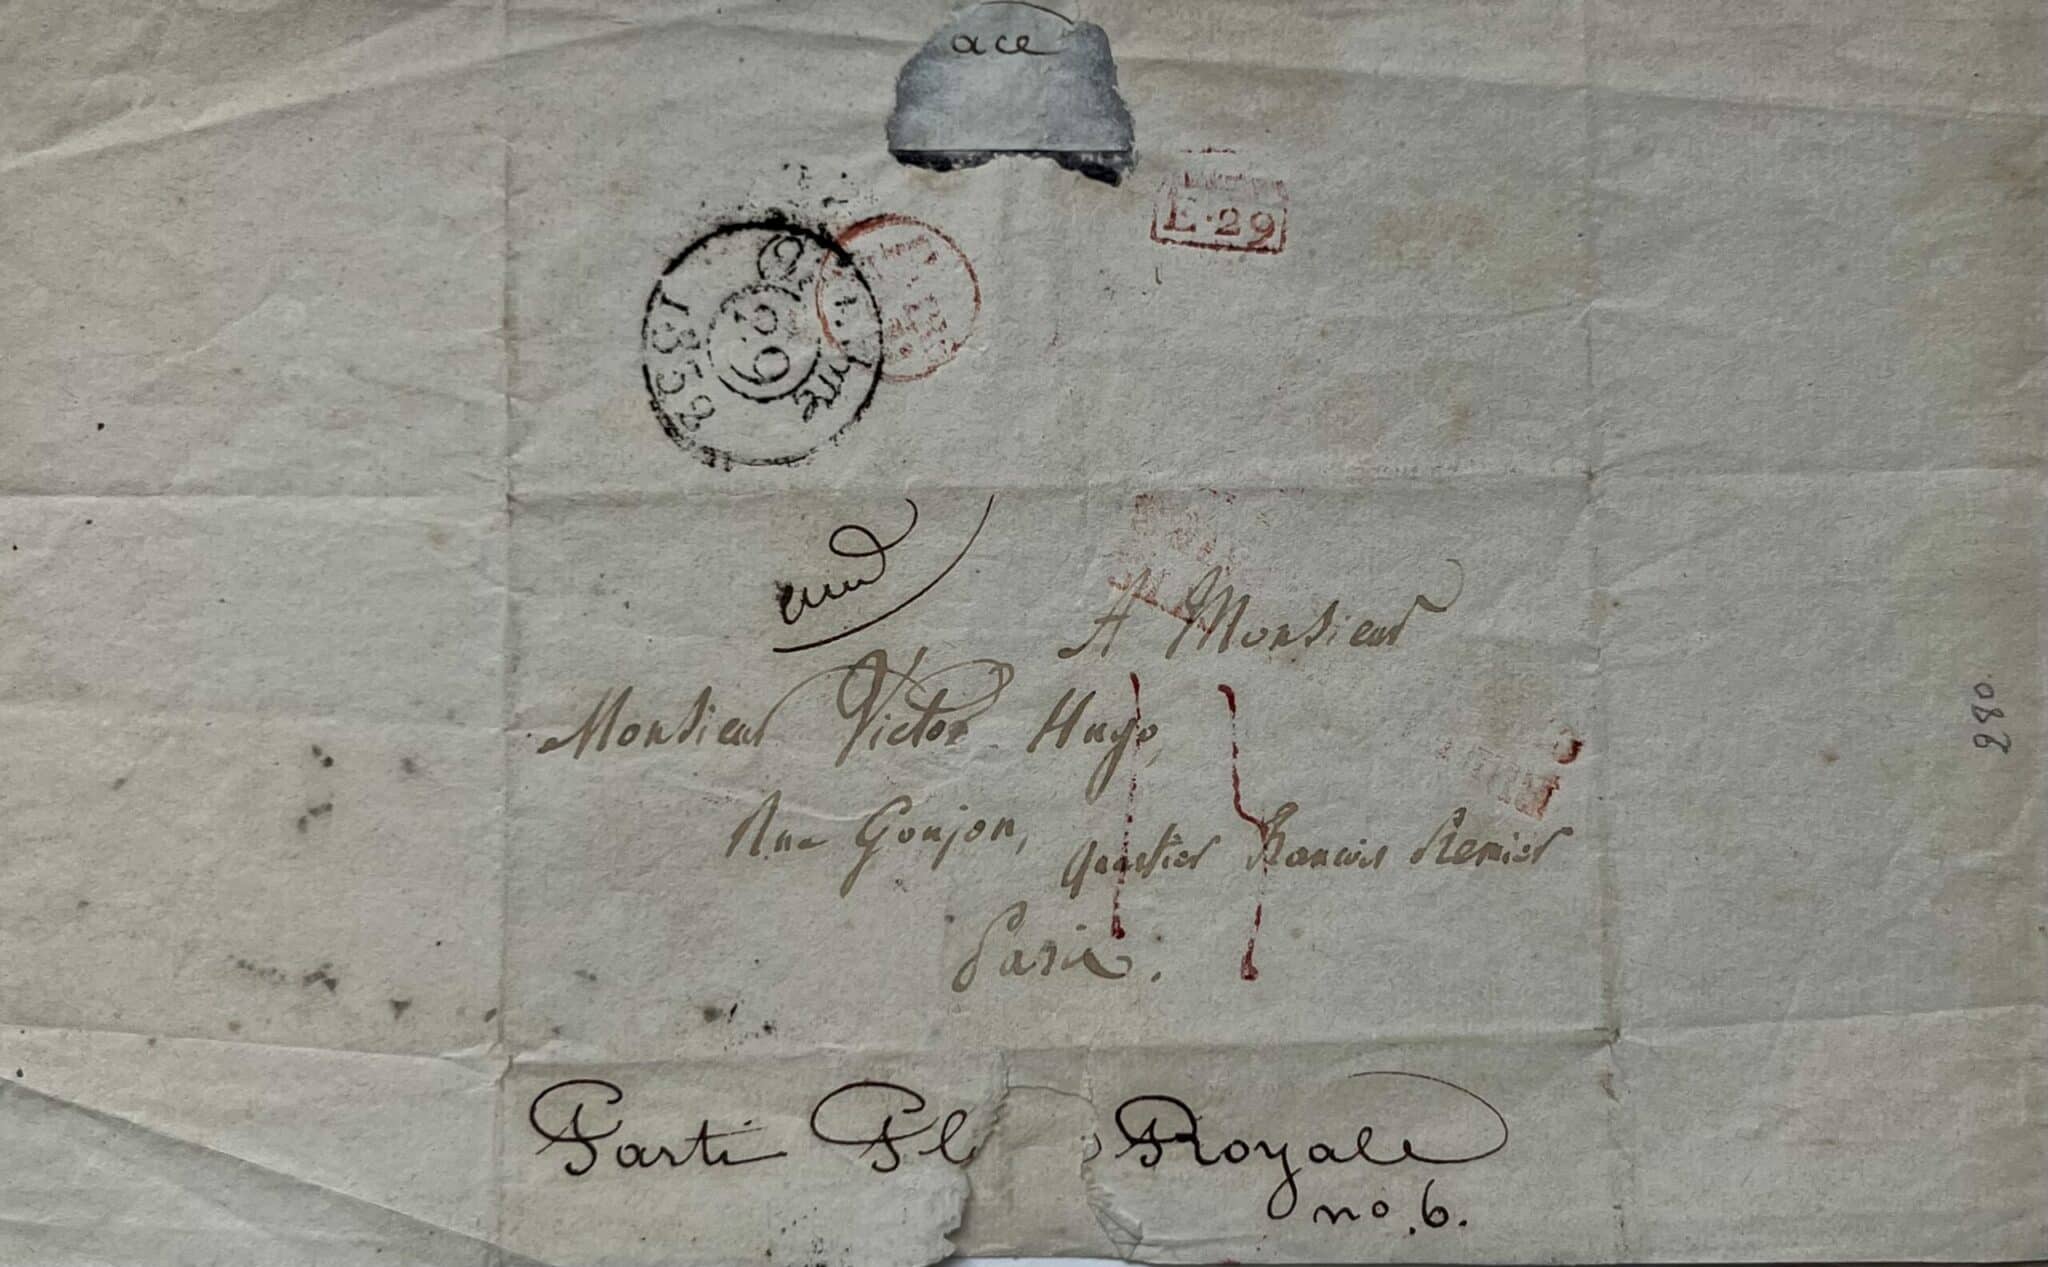 ace
E.29
1832
A Monsieur
Monsieur Victor Hugo,
Rue Goujon, quartier François Premier
Paris.
Parti Pl Royale
no. 6.
280.